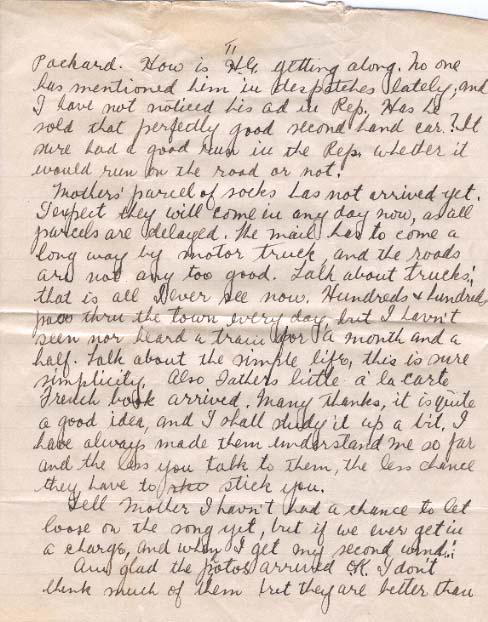 II
Packard. How is H.G. getting along. No one
has mentioned him in despatches lately, and
I have not noticed his ad in Rep. Has he
sold that perfectly good second hand car? It
sure had a good run in the Rep. whether it
would run on the road or not.
Mothers' parcel of socks has not arrived yet.
I expect they will come in any day now, as all
parcels are delayed. The mail has to come a
long way by motor truck, and the roads
are not any too good. Talk about trucks,
that is all I ever see now. Hundreds & hundreds
pass thru the town every day, but I havn't
seen nor heard a train for a month and a
half. Talk about the simple life, this is sure
simplicity. Also, Fathers little á la carte
French book arrived. Many thanks, it is quite
a good idea, and I shall study it up a bit. I
have always made them understand me so far
and the less you talk to them, the less chance
they have to stick you.
Tell Mother I havn't had a chance to let
loose on the song yet, but if we ever get in
a charge, and when I get my second wind!!
Am glad the potos arrived OK. I don't
think much of them but they are better than